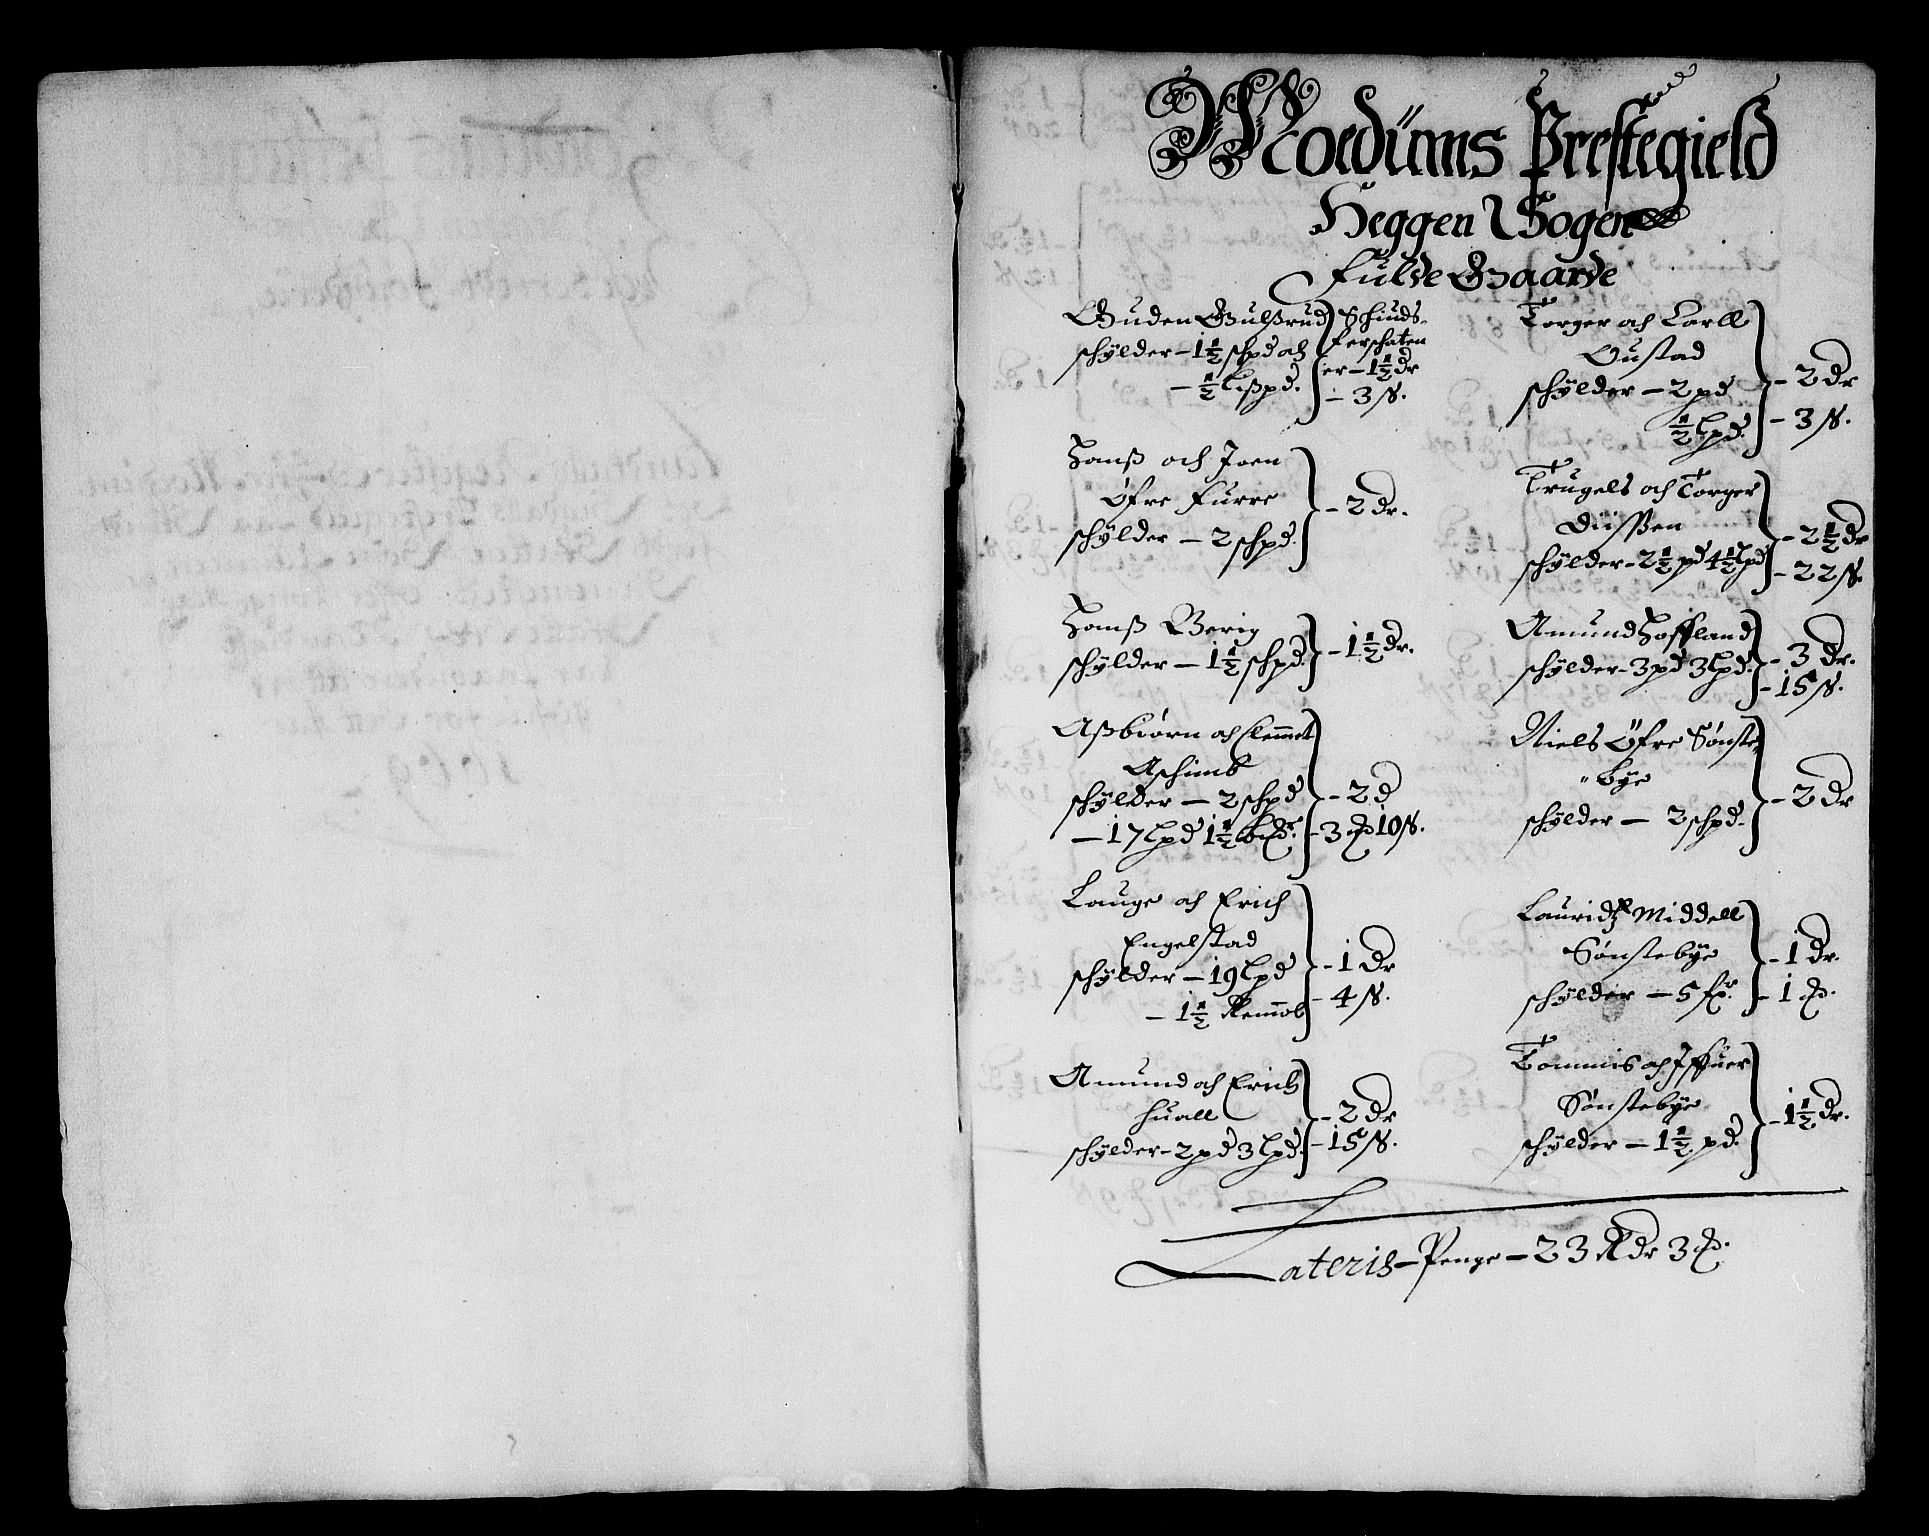 Moedums Prestegield
Heggen Sogen
Fulde Gaarde
Guden Gulßrud
schÿlder – 1½ schpd och
– ½ Lißpd.
Schiuds-
ferschaten
er – 1½ dr
– 3 ß.
Hanß och Joen
Øfre Furre
schÿlder – 2 schpd.
– 2 dr.
Hanß Berig
schÿlder – 1½ schpd.
– 1½ dr.
Aßbiørn och Clemmet
Aschimb
schÿlder – 2 schpd
– 17 Lpd 1½
– 2 d
– 3 10 ß.
Lauge och Erich
Engelstad
schÿlder – 19 Lpd
– 1½ Remmol
– 1 dr
– 4 ß.
Amund och Erich
Huall
schÿlder – 2 pd 3 Lpd.
– 2 dr
– 15 ß.
Torger och Carll
Oustad
schÿlder – 2 pd
½ Lpd.
– 2 dr
– 3 ß.
Trugels och Torger
Düssen
schÿlder – 2½ pd 4½ Lpd
– 2½ dr
– 22 ß.
Amund Hoffland
schÿlder – 3 pd 3 Lpd.
– 3 dr.
– 15 ß.
Niels Øfre Sønste-
bye
schÿlder – 2 schpd.
– 2 dr
Lauridtz Middell
Sønstebye
schÿlder – 5 fr.
– 1 dr.
– 1
Tommis och Iffuer
Sønstebye
schÿlder – 1½ pd.
– 1½ dr.
Lateris – Penge – 23 Rdr 3